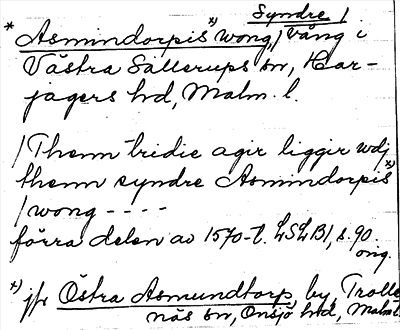 Syndre /
* Asmindorpis *) wong, / vång i
Västra Sallerups sn, Har-
jagers hd, Malm. l.
/ Thenn tridie agir liggir wdj
thenn syndre Asmindorpis *)
/ wong - - - -
förra delen av 1570-t. LSLB1, s. 90
orig.
*) jfr Östra Asmundtorp, by, Trolle-
näs sn, Onsjö hd, Malm. l.